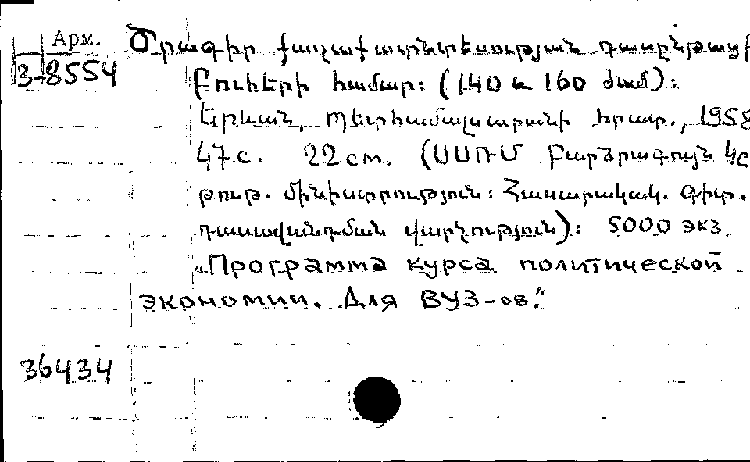 Арм.
3-8554
Ծրագիր քաղաքատնտեսության դասընթացի
Բուհերի համար: (140 և 160 ժամ):
Երևան, Պետհամալսարանի հրատ., 1958
47с. 22 см. (ՍՍՌՄ Բարձրագույն կր
թութ. մինիստրություն: Հասարակակ. գիտ.
դասավանդման վարչություն): 5000 экз.
„Программа курса политической
экономии. Для ВУЗ-ов."
36434